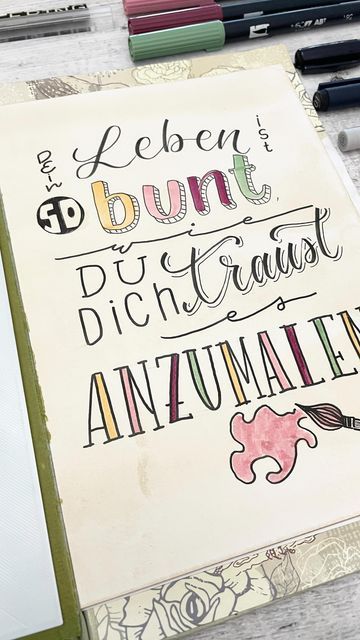 Dein Leben ist
SO bunt
wie
DU traust
DiCH
es
ANZUMALEN